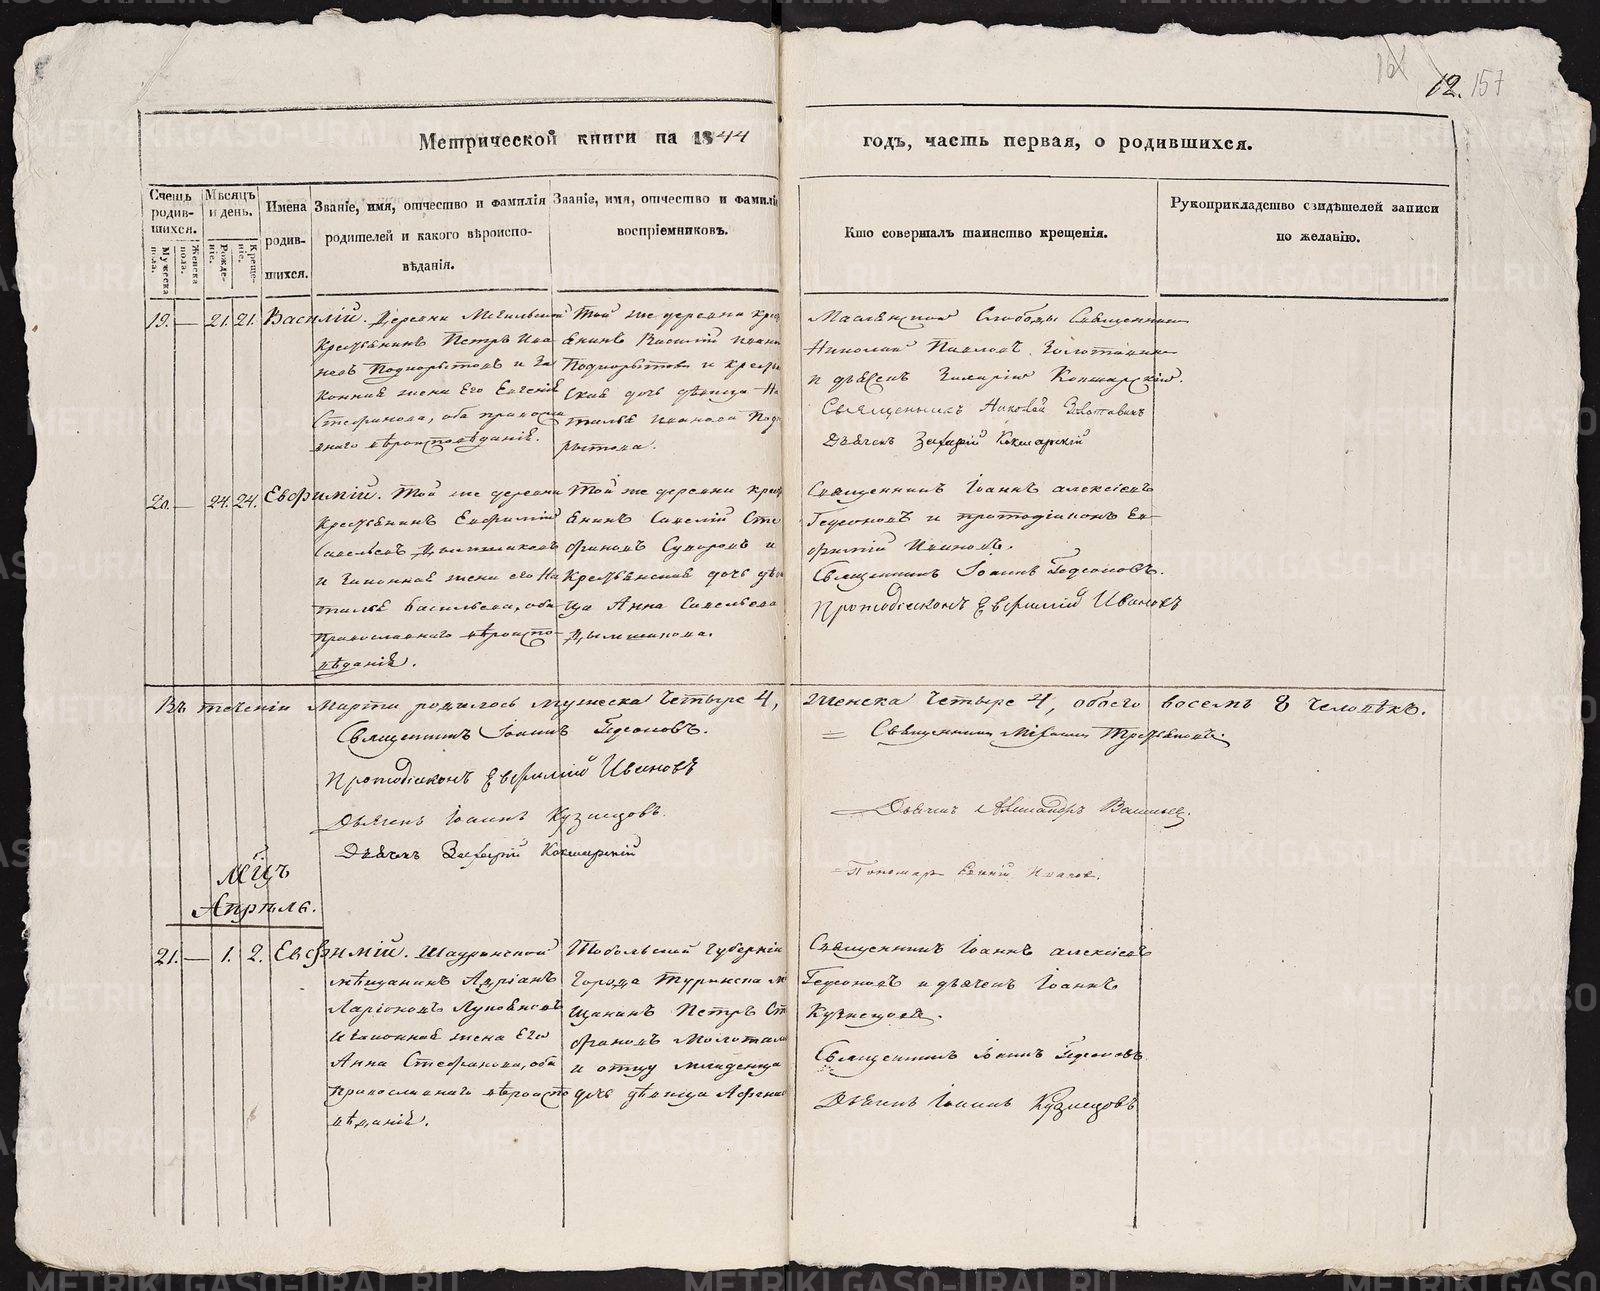 12. 157
Метрической книги на 1844
годъ, часть первая, о родившихся.
Счетъ родившихся.
Мужеска пола.
Женска пола.
Мѣсяцъ и день.
Рожденіе.
Крещеніе.
Имена родившихся.
Званіе, имя, отчество и фамилія
родителей и какого вѣроиспо-
вѣданія.
Званіе, имя, отчество и фамилія
воспріемниковъ.
Кто совершалъ таинство крещенія.
Рукоприкладство свидѣтелей записи
по желанію.
19. — 21. 21. Василій.
Крестьянинъ Петръ Ива
новъ Подкорытовъ и За
конная жена его Евгенія
Стефанова, оба правосла
внаго вѣроисповѣданія.
Той же деревни крес
янинъ Василій Ивано
Подкорытовъ и крестья
ская дочь дѣвица На
талья Иванова Подко
рытова.
Маслянской Слободы Священникъ
Николай Павловъ Золотавинъ
и дьячекъ Захарій Кокшарскій.
Священникъ Николай Золотавинъ
Дьячекъ Захарій Кокшарскій
20. — 24. 24. Евфимій. Той же деревни
Крестьянинъ Евфимій
Савельевъ Дымшаковъ
и Законная жена его На
талья Васильева, оба
православнаго вѣроиспо-
вѣданія.
Той же деревни крест
янинъ Савелій Сте
фановъ Суворовъ и
Крестьянская дочь дѣви
ца Анна Савельева
Дымшакова.
Священникъ Іоаннъ Алексіевъ
Гедеоновъ и протодіаконъ Ев-
фимій Ивановъ.
Священникъ Іоаннъ Гедеоновъ.
Протодіаконъ Евфимій Ивановъ
Въ теченіи Марта родилось мужеска четыре 4, женска четыре 4, обоего восемь 8 человѣкъ.
Священникъ Іоаннъ Гедеоновъ.
Протодіаконъ Евфимій Ивановъ
Дьячекъ Іоаннъ Кузнецовъ.
Дьячекъ Захарій Кокшарскій
= Священникъ
Дьячекъ Александръ
= Пономарь
Мѣцъ
Апрѣль.
21. — 1. 2. Евфимій. Шадринской
мѣщанинъ Адріанъ
Ларіоновъ
и законная жена Его
Анна Стефанова, оба
Православнаго вѣроиспо
вѣданія.
Тобольской Губерніи
Города Туринска мѣ
щанинъ Петръ Ст
фановъ
и отцу младенца
дочь дѣвица
Священникъ Іоаннъ Алексіевъ
Гедеоновъ и дьячекъ Іоаннъ
Кузнецовъ.
Священникъ Іоаннъ Гедеоновъ
Дьячекъ Іоаннъ Кузнецовъ
METRIKI.GASO-URAL.RU